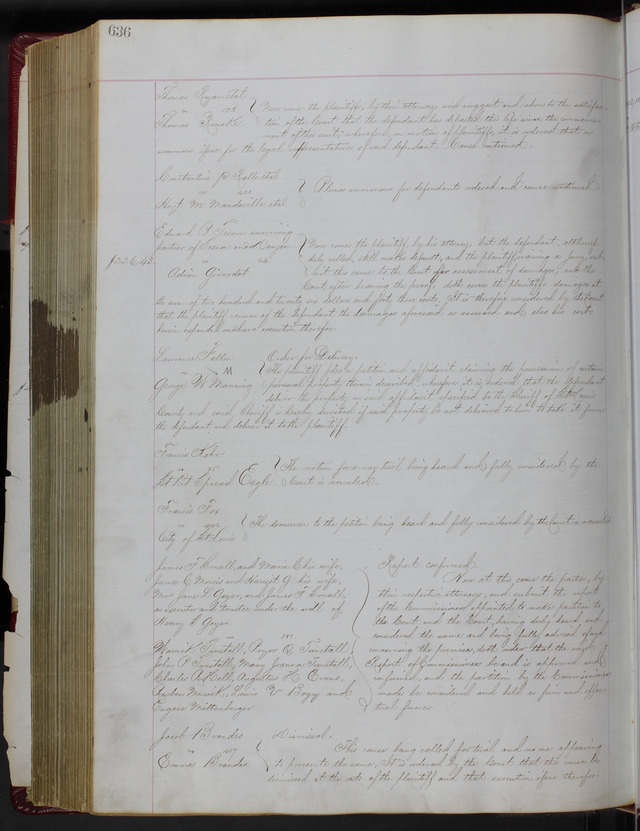 636
Thomas
vs
Thomas
Now come the plaintiffs, by their attorney and suggest and show to the satisfac-
tion of the Court that the defendant has departed this life since the commence-
ment of this suit; wherefore, on motion of plaintiffs, it is ordered that a
summons issue for the legal representatives of said defendant. Cause continued.
Constantin
vs
Hoyt M Mandeville etal
Pluris summons for defendants ordered and cause continued.
Edward P Tesson surviving
partner of Tesson and Danjen
vs
Adrian Girardot
Now comes the plaintiff, by his attorney, but the defendant, although
duly called, still makes default, and the plaintiff waiving a Jury, sub-
mits this cause to the Court for assessment of damages, and the
Court after hearing the proof, doth assess the plaintiffs damages at
the sum of two hundred and twenty six dollars and forty three cents. It is therefore considered by the Court
that the plaintiff recover of the defendant the damages aforesaid as assessed and also his costs
herein expended and have execution therefor.
Lawrence Fallon
vs
George W Manning
Order for Delivery.
The plaintiff files a petition and affidavit claiming the possession of certain
personal property therein described, wherefore it is ordered that the defendant
deliver the property in said affidavit specified to the Sheriff of St Louis
County and said Sheriff is hereby directed if said property be not delivered to him to take it from
the defendant and deliver it to the plaintiff.
Francis
St Bt Spread Eagle
The motion for a new trial being heard and fully considered by the
Court is overruled.
Francis Fox
vs
City of St Louis
The demurrer to the petition being heard and fully considered by the Court is overruled
James F Small and Maria C his wife,
Jane C Morris and Harriet G his wife,
Mrs Jane Geyer, and James F Small,
as executor and trustee under the will of
Henry S Geyer.
vs
Warrick Tunstall, Pryor Q Tunstall,
John P Tunstall, Mary Joanna Tunstall,
Charles A Kell, Augustus H Evans,
Musick, Lewis V Bogy and
Eugene Miltenberger
Report confirmed.
Now at this come the parties, by
their respective attorneys, and submit the report
of the Commissioners appointed to make partition, to
the Court and the Court, having duly heard and
considered the same and being fully advised of and
concerning the premises, doth order that the said
Report of Commissioners be and is approved and
confirmed, and the partition by the Commissioners
made be considered and held as firm and effec-
tual forever.
Jacob Brandes
vs
Emma Brandes
Dismissal.
This cause being called for trial and no one appearing
to prosecute the same, It is ordered by the Court that this cause be
dismissed at the cost of the plaintiff and that execution issue therefor.